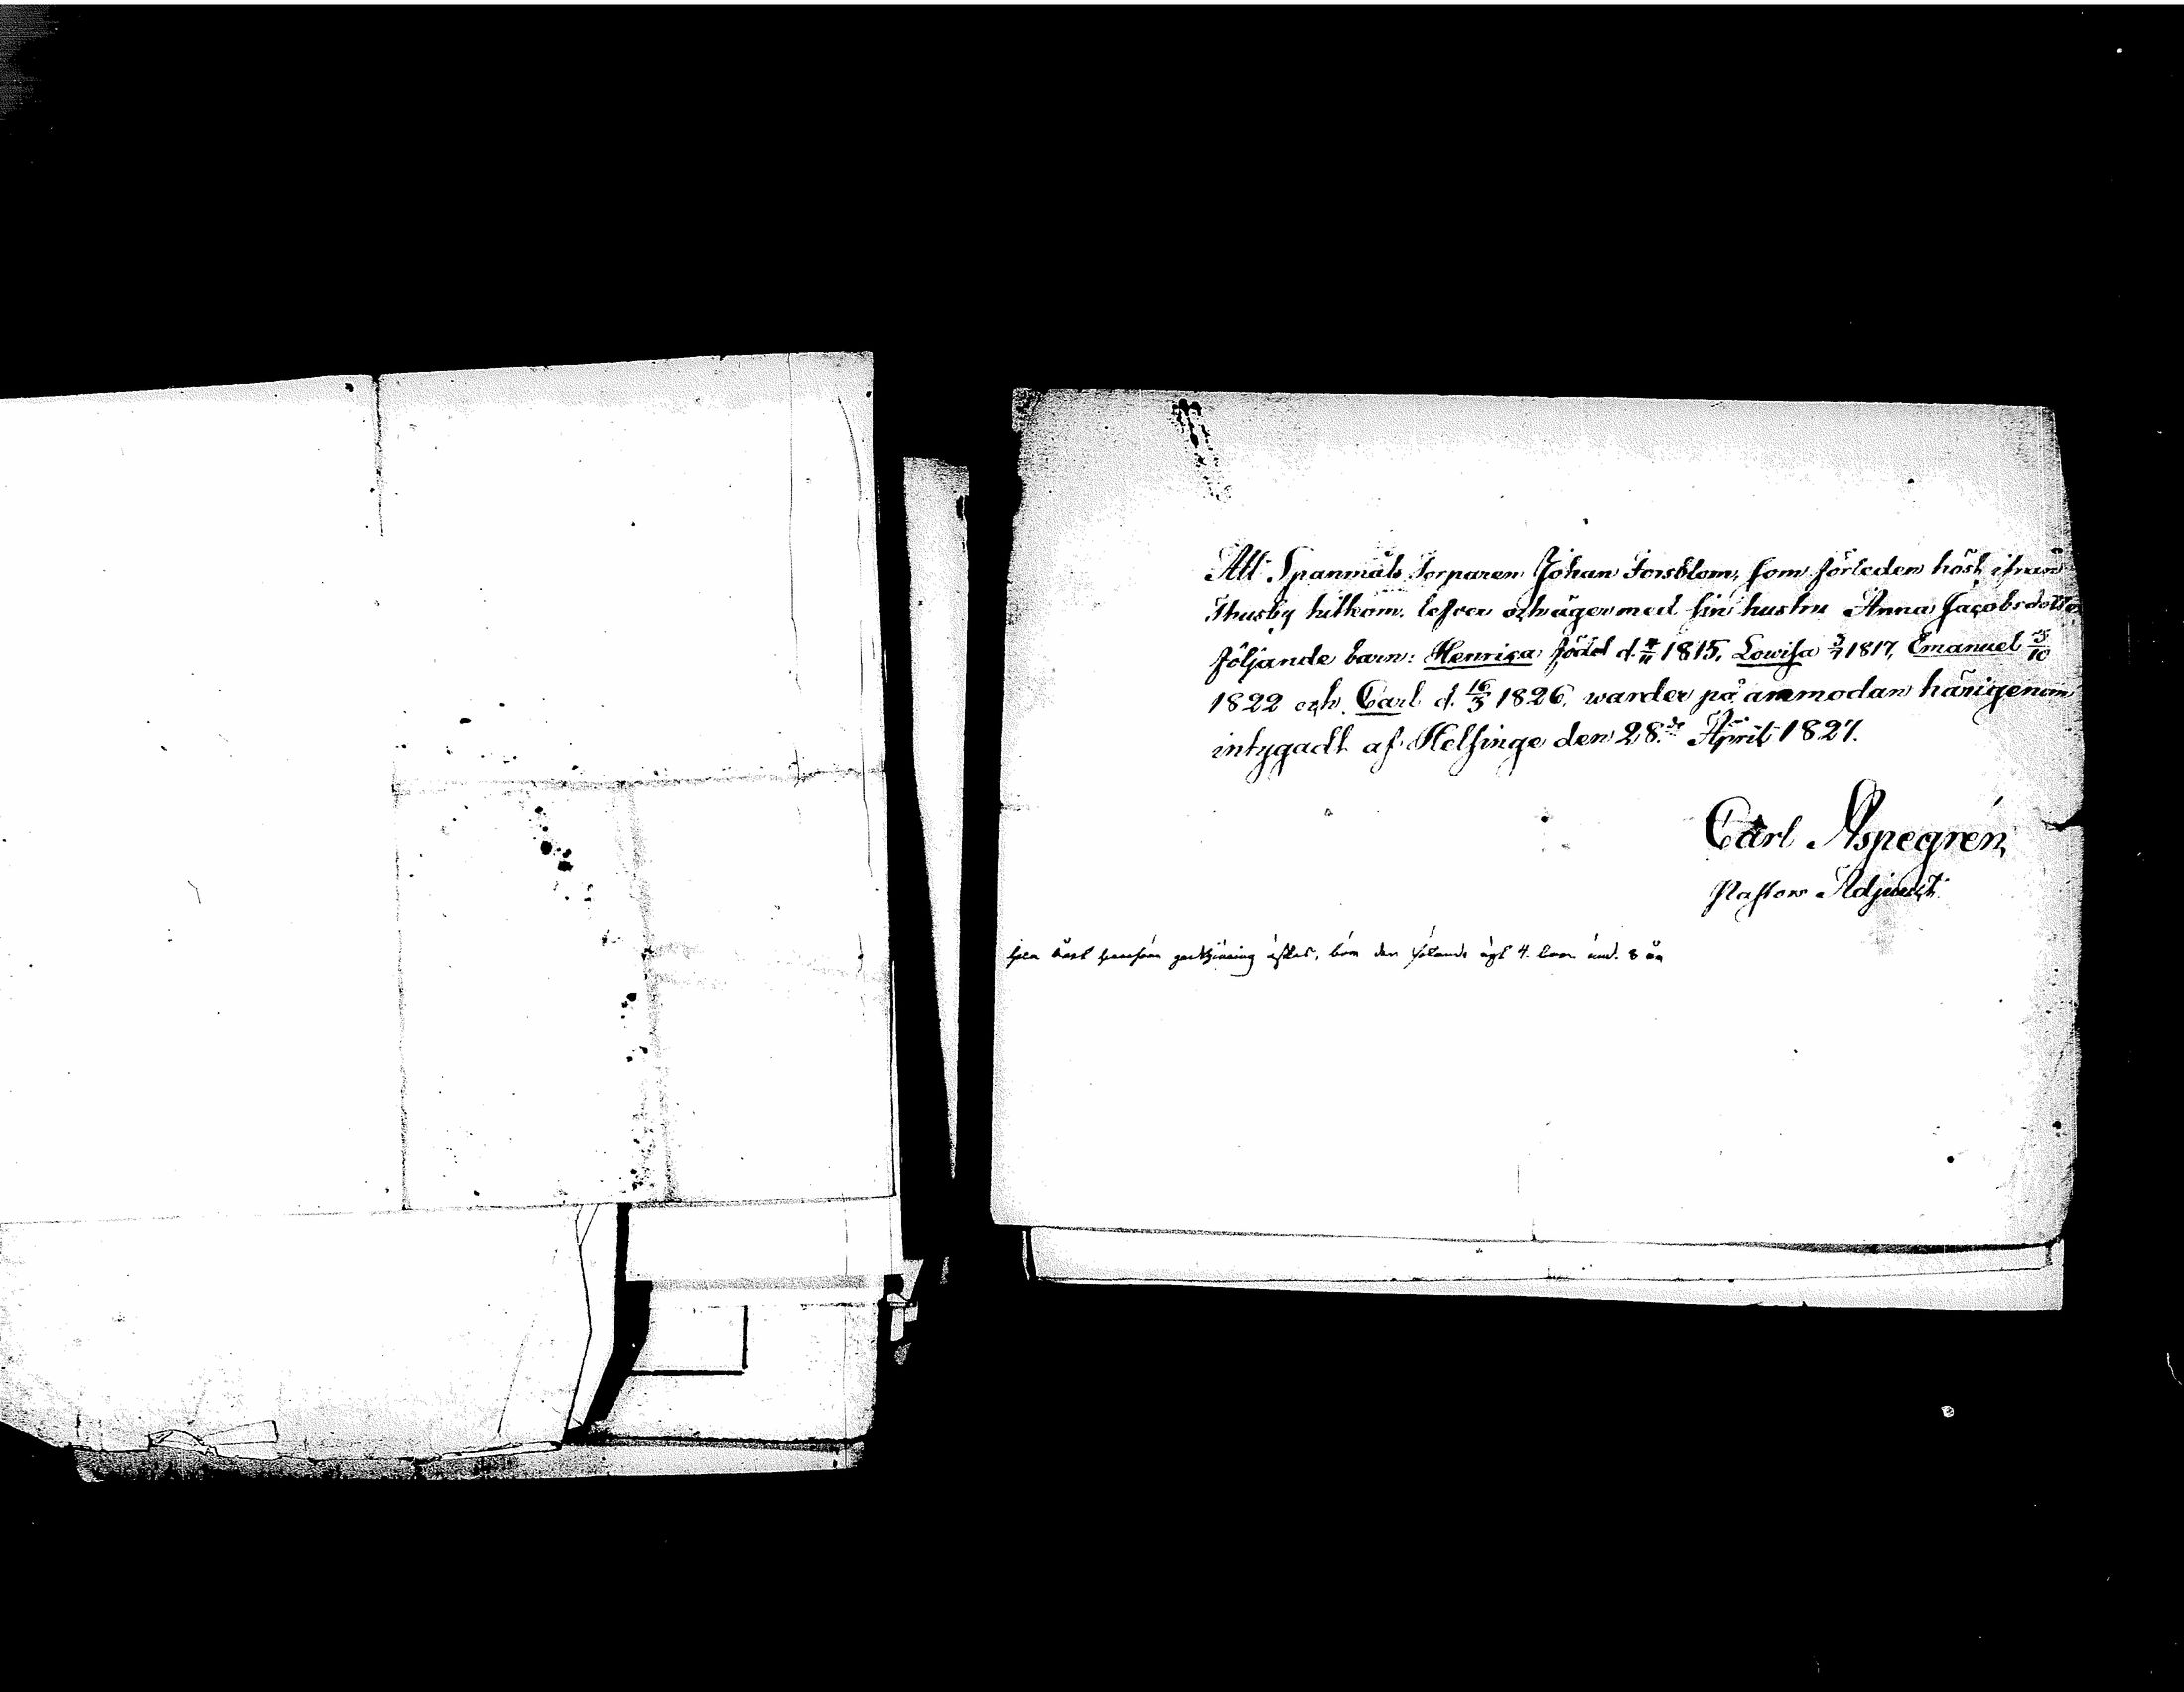 Att Spanmåls Torparen Johan Forsblom, som förleden höst ifrån
Thusby hitkom, lefver och äger med sin hustru Anna Jacobsdotter
följande barn: Henrica född d. 4/11 1815, Lowisa 3/7 1817, Emanuel 3/10
1822 och Carl d. 16/3 1826, warder på anmodan härigenom
intygadt af Helsinge den 28de April 1827.
Carl Aspegrén,
Pastors Adjunct.
den 4. barn und. 8 år